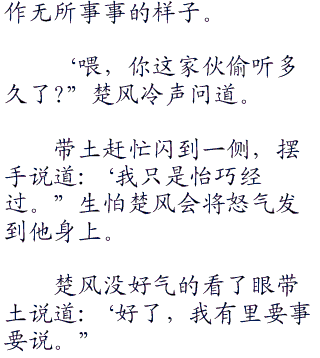 作无所事事的样子。
‘喂，你这家伙偷听多
久了?”楚风冷声问道。
带土赶忙闪到一侧，摆
手说道：‘我只是怡巧经
过。”生怕楚风会将怒气发
到他身上。
楚风没好气的看了眼带
土说道：‘好了，我有里要事
要说。”